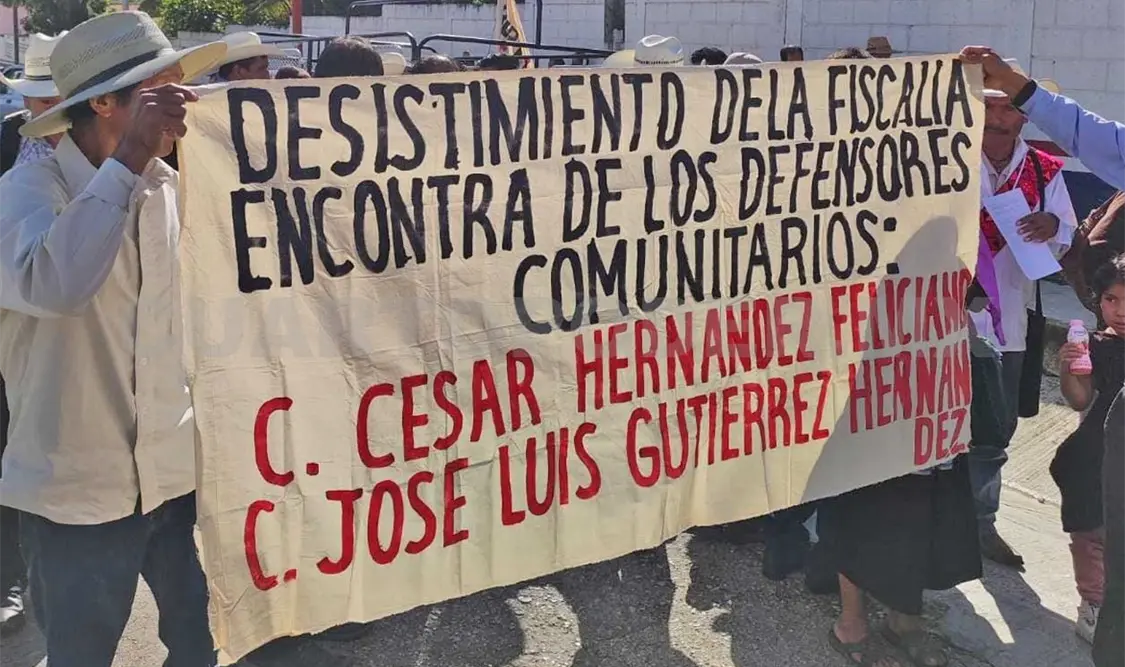 DESISTIMIENTO DELA FISCALIA
ENCONTRA DE LOS DEFENSORES
COMUNITARIOS:
C. CESAR HERNANDEZ FELICIANO
C. JOSE LUIS GUTIERREZ HERNAN
DEZ.